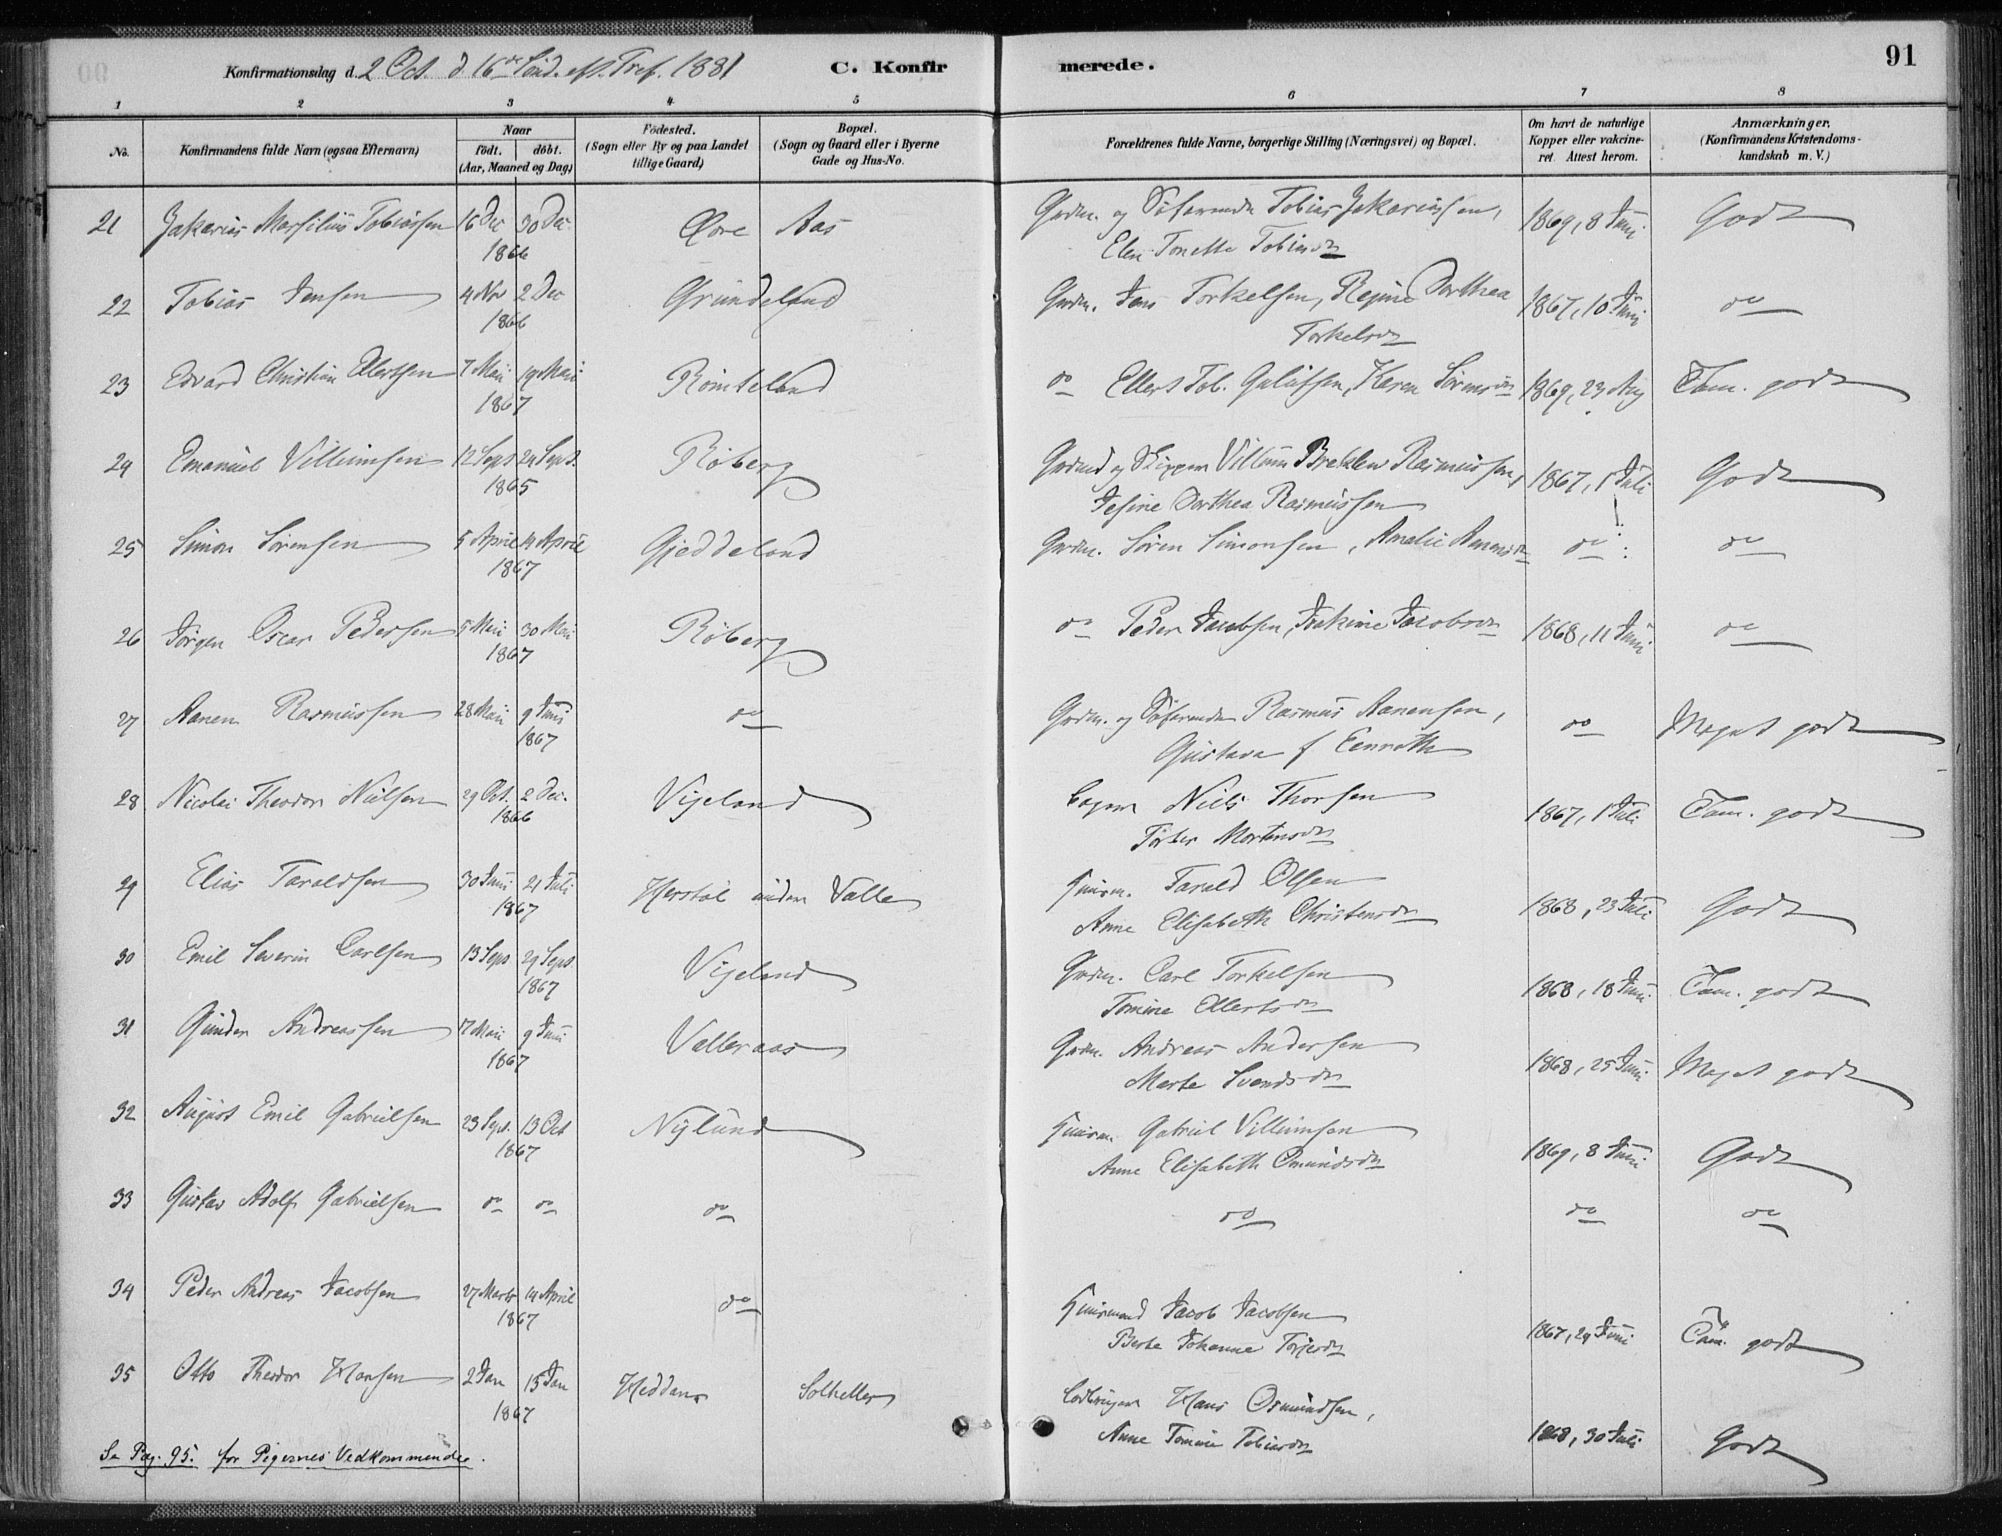 Konfirmationsdag d. 2 Oct. d 16de Sönd. eft. Tref. 1881 C. Konfirmerede. 91
1 2 3 4 5 6 7 8
No. Konfirmandens fulde Navn (ogsaa Efternavn) Naar födt. döbt. (Aar, Maaned og Dag) Födested. (Sogn eller By og paa Landet tillige Gaard) Bopæl. (Sogn og Gaard eller i Byerne Gade og Hus-No. Forældrenes fulde Navne, borgerlige Stilling (Næringsvei) og Bopæl. Om havt de naturlige Kopper eller vakcineret. Attest herom. Anmærkninger, (Konfirmandens Kristendomskundskab m. V.)
21 Zakarias Marsilius Tobiassen 16 Dec 30 Dec Øvre Aas Grdm. og Søfarende Tobias Zakariassen, 1869, 8 Juni Godt
1866 Elen Tonette Tobiasdtr
22 Tobias Jensen 4 Nov 2 Dec Grundeland Grdm. Jens Torkelsen, Regine Dorthea 1867, 10 Juni do
1866 Torkelsdtr
23 Edvard Christian Ellertsen 7 Mai 19 Mai Römteland do Ellert Tob. Gulufsen, Karen Sörensdtr 1869, 23 Aug Tem. godt
1867
24 Emanuel Villumsen 12 Sept 24 Sept. Röberg Grdmd og Skipper Villum Brekler Rasmussen, 1867, 1 Juli Godt
1865 Jesine Dorthea Rasmussen
25 Simon Sörensen 5 April 14 April Gjeddeland Grdm. Sören Simonsen, Amalie Aanensdtr do do
1867
26 Jörgen Oscar Pedersen 5 Mai 30 Mai Röberg do Peder Jacobsen, Joakime Jacobsdtr 1868, 11 Juni do
1867
27 Aanen Rasmussen 28 Mai 9 Juni do Grdm. og Søfarende Rasmus Aanensen, do Meget godt
1867 Gustava f Eenroth
28 Nicolai Theodor Nielsen 29 Oct. 2 Dec. Vigeland Niels Thorsen 1867, 1 Juli Tem. godt
1866 Torber Mortensdtr
29 Elias Taraldsen 30 Juni 21 Juli Herstöl under Valle Husm. Tarald Olsen 1868, 23 Juli Godt
1867 Anne Elisabeth Christensdtr
30 Emil Severin Carlsen 13 Sept 29 Sept. Vigeland Grdm. Carl Torkelsen 1868, 18 Juni Tem. godt
1867 Tomine Ellertsdtr
31 Gunder Andreassen 7 Mai 9 Juni Valleraas Grdm. Andreas Andersen 1868, 25 Juni Meget godt
1867 Marte Svendsdtr
32 August Emil Gabrielsen 23 Sept. 13 Oct Nylund Husm. Gabriel Villumsen 1869, 8 Juni Godt
1867 Anne Elisabeth Omundsdtr
33 Gustav Adolf Gabrielsen do do do do do do
34 Peder Andreas Jacobsen 27 Marts 14 April do Husmand Jacob Jacobsen 1867, 24 Juni Tem. godt
1867 Berte Johanne Torjersdtr
35 Otto Theodor Hansen 2 Jan 13 Jan Heddan Solheller Hans Osmundsen, 1868, 30 Juli Godt
1867 Anne Tomine Tobiasdtr
Se Pag. 95. for Pigernes Vedkommende.